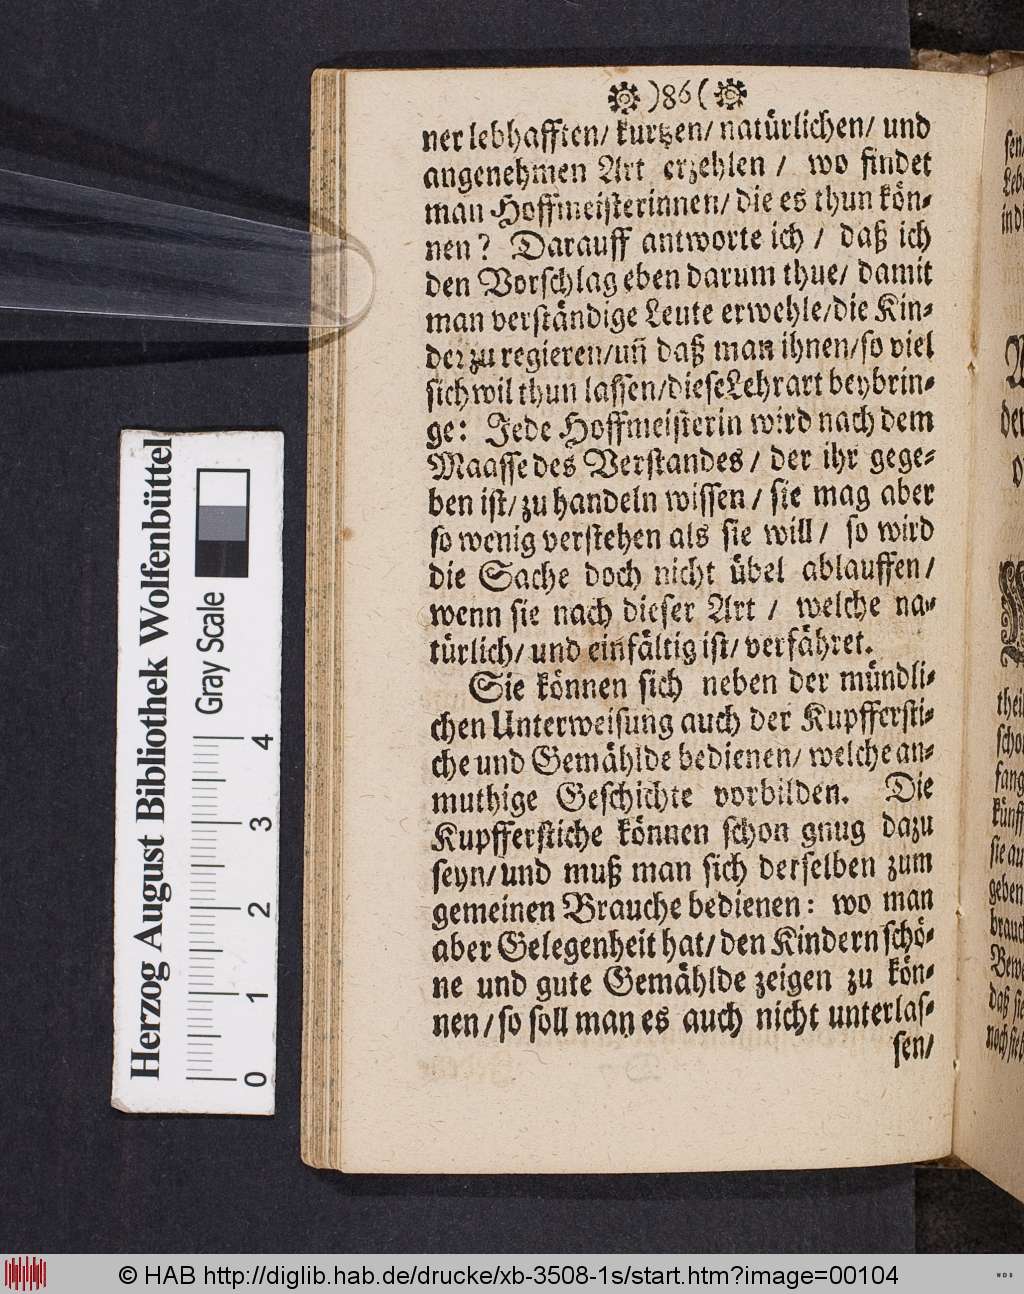 )86(
ner lebhafften/ kurtzen/ natürlichen/ und
angenehmen Art erzehlen / wo findet
man Hoffmeisterinnen/ die es thun kön⸗
nen? Darauff antworte ich / daß ich
den Vorschlag eben darum thue/ damit
man verständige Leute erwehle/die Kin⸗
der zu regieren/uñ daß man ihnen/so viel
sich wil thun lassen/diese Lehrart beybrin⸗
ge: Jede Hoffmeisterin wird nach dem
Maasse des Verstandes / der ihr gege⸗
ben ist/ zu handeln wissen / sie mag aber
so wenig verstehen als sie will / so wird
die Sache doch nicht übel ablauffen/
wenn sie nach dieser Art / welche na⸗
türlich/ und einfältig ist/ verfähret.
Sie können sich neben der mündli⸗
chen Unterweisung auch der Kupffersti⸗
che und Gemählde bedienen/ welche an⸗
muthige Geschichte vorbilden. Die
Kupfferstiche können schon gnug dazu
seyn/ und muß man sich derselben zum
gemeinen Brauche bedienen: wo man
aber Gelegenheit hat/ den Kindern schö⸗
ne und gute Gemählde zeigen zu kön⸗
nen/ so soll man es auch nicht unterlas⸗
sen/
Herzog August Bibliothek Wolfenbüttel
Gray Scale
0 1 2 3 4
© HAB http://diglib.hab.de/drucke/xb-3508-1s/start.htm?image=00104